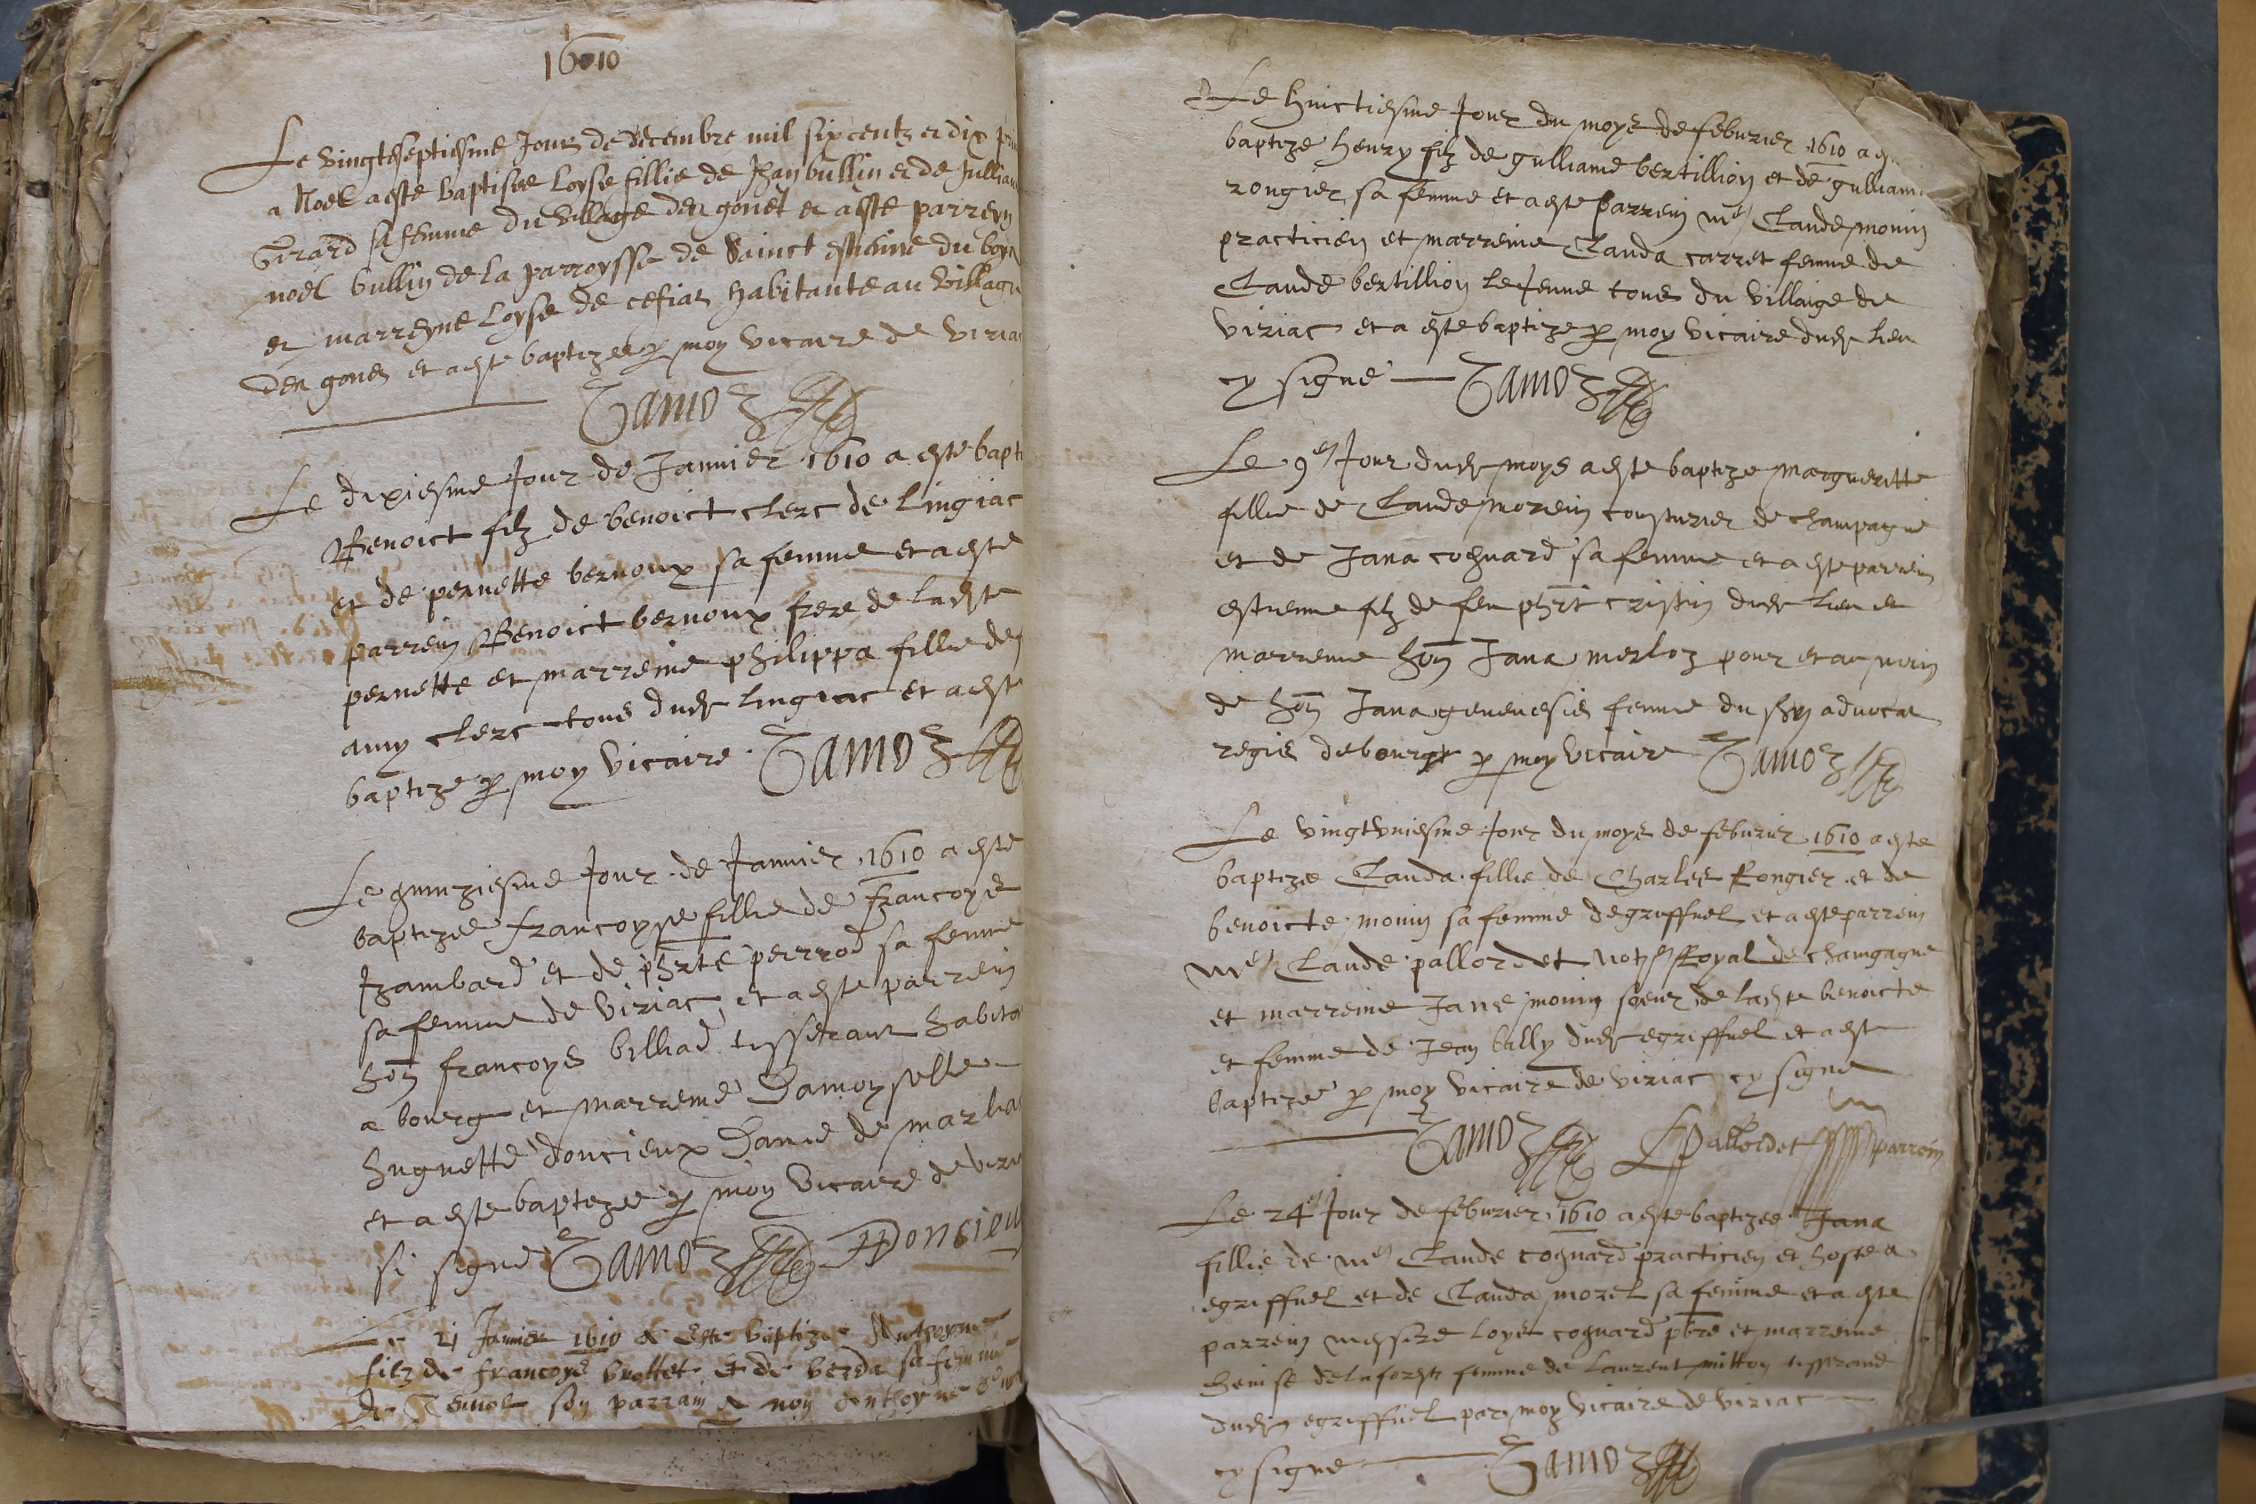 1610
Le vingtseptiesme Jour de decembre mil six centz et dix
a Noel a este baptisee Loyse fillie de Jhan bullin et de Jullian
Girard sa femme du village den gonet et a este parreyn
noel bullin de la parroysse de Sainct estienne du boys
et marreyne Loyse de cefiar habitante au village
den gones et a este baptizee p moy vicaire de viria
Tamoz
Le dixiesme Jour de Januier 1610 a este bapt
Benoict filz de benoict clerc de Lingiac
et de pernette bernoux sa femme et a este
parrein Benoict bernoux frere de ladste
pernette et marreine philippa fillie de
amy clerc tous duds lingiac et a este
baptize p moy vicaire Tamoz
Le quinziesme Jour de Januier 1610 a este
baptizee francoyse fillie de francoys
Jzambard et de phrte perrod sa femme
sa femme de viriac et a este parrein
hon francoys billiad tisserant habita
a bourg et marreine Damoyselle
huguette doncieux Dame de marlia
et a este baptizee p moy vicaire de viri
si signe Tamoz Doncieu
Le 21 Januier 1610 a este baptize Anthoyne
filz de francoys brottet et de berda sa femme
son parrain a noy anthoyne
Le huictiesme Jour du moys de feburier 1610 a
baptize henry filz de gulliame bertillion et de gulliam
rongier sa femme et a este parrein me Claude monin
practicien et marreine Clauda carret femme de
Claude bertillion le Jeune tous du villaige de
viriac et a este baptize p moy vicaire duds lieu
cy signe Tamoz
Le 9e Jour duds moys a este baptize margueritte
fillie de Claude morein cousturier de champagne
et de Jana cognard sa femme et a este parrein
estienne filz de feu phrt cristin duds lieu et
marreine hon Jana merloz pour et au nom
de hon Jana genenesie femme du sr advocat
regis de bourg p moy vicaire Tamoz
Le vingtvniesme Jour du moys de feburier 1610 a este
baptize Clauda fillie de Charles Rongier et de
benoicte monin sa femme degriffuel et a este parrein
me Claude pallordet notre Royal de champagne
et marreine Jane monin soeur de ladste benoicte
et femme de Jean bally duds egriffuel et a este
baptize p moy vicaire de viriac cy signe
Tamoz Pallordet parrein
Le 24e Jour de feburier 1610 a este baptizee Jana
fillie de me Claude cognard practicien et hoste a
egriffuel et de Clauda morel sa femme et a este
parrein messire loys cognard pbre et marreine
henise delaforest femme de Laurent mitton tisserand
duds egriffuel par moy vicaire de viriac
cy signe Tamoz